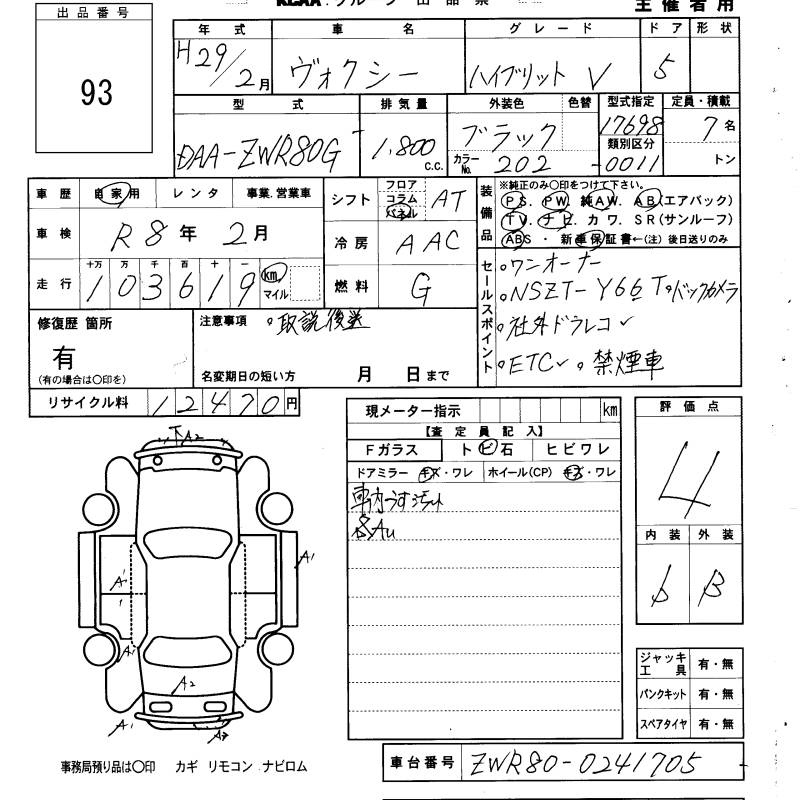 KCAA.グループ 出品票
主催者用
出品番号
93
年式 車名 グレード ドア 形状
H29/2月 ヴォクシー ハイブリット V 5
型式 排気量 外装色 色替 型式指定 定員・積載
DAA-ZWR80G 1,800 c.c. ブラック 17698 7名
カラーNo. 202 類別区分 -0011 トン
車歴 自家用 レンタ 事業.営業車
シフト フロア コラム パネル AT
車検 R8年 2月
冷房 AAC
走行 十万 万 千 百 十 一
103619 km マイル
燃料 G
装備品
※純正のみ〇印をつけて下さい。
PS. PW. 純AW. AB(エアバック)
TV. ナビ. カワ. SR(サンルーフ)
ABS・新車保証書←(注) 後日送りのみ
セールスポイント
。ワンオーナー
。NSZT-Y66T。バックカメラ
。社外ドラレコ✓
。ETC✓ 。禁煙車
修復歴 箇所
有
(有の場合は〇印を)
注意事項 。取説後送
名変期日の短い方 月 日まで
リサイクル料 12470円
現メーター指示 km
【査定員記入】
Fガラス ト ビ 石 ヒビワレ
ドアミラー キズ・ワレ ホイール(CP) キズ・ワレ
車内うすヨゴレ
各AU
評価点
4
内装 外装
b B
A2
A1
A1
1
A1
A2
A1
A2
ジャッキ工具 有・無
パンクキット 有・無
スペアタイヤ 有・無
事務局預り品は〇印 カギ リモコン ナビロム
車台番号 ZWR80-0241705